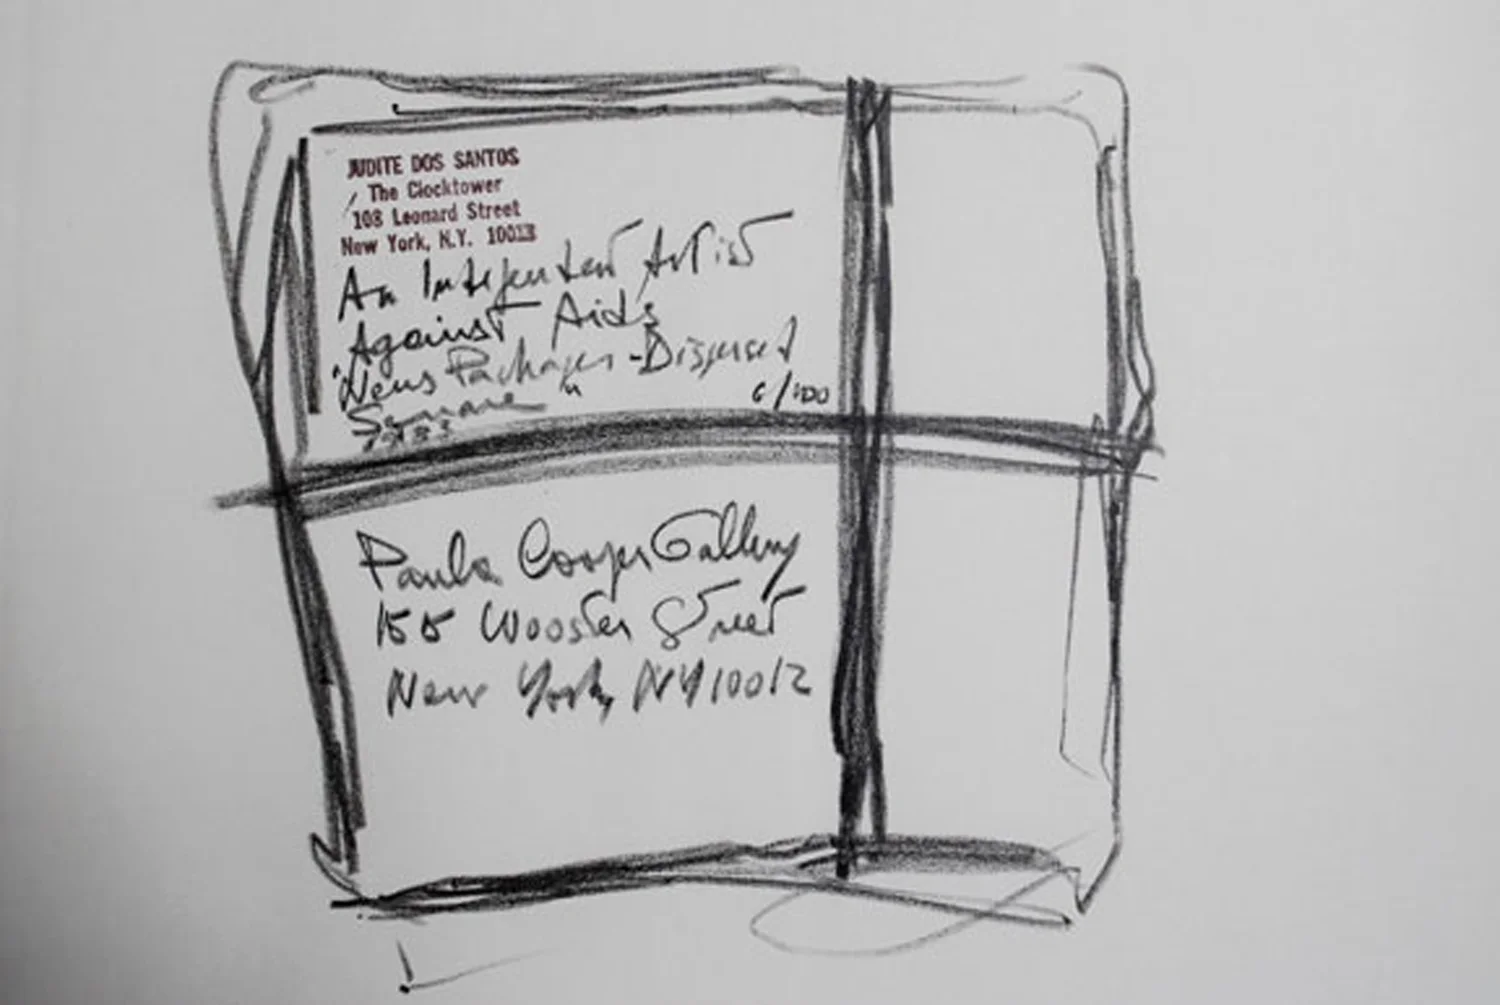 JUDITE DOS SANTOS
The Clocktower
108 Leonard Street
New York, N.Y. 10013
An Independent Artist
Against Aids
"News Packages - Dispersed
"
6/100
Paula Cooper Gallery
155 Wooster Street
New York, NY 10012